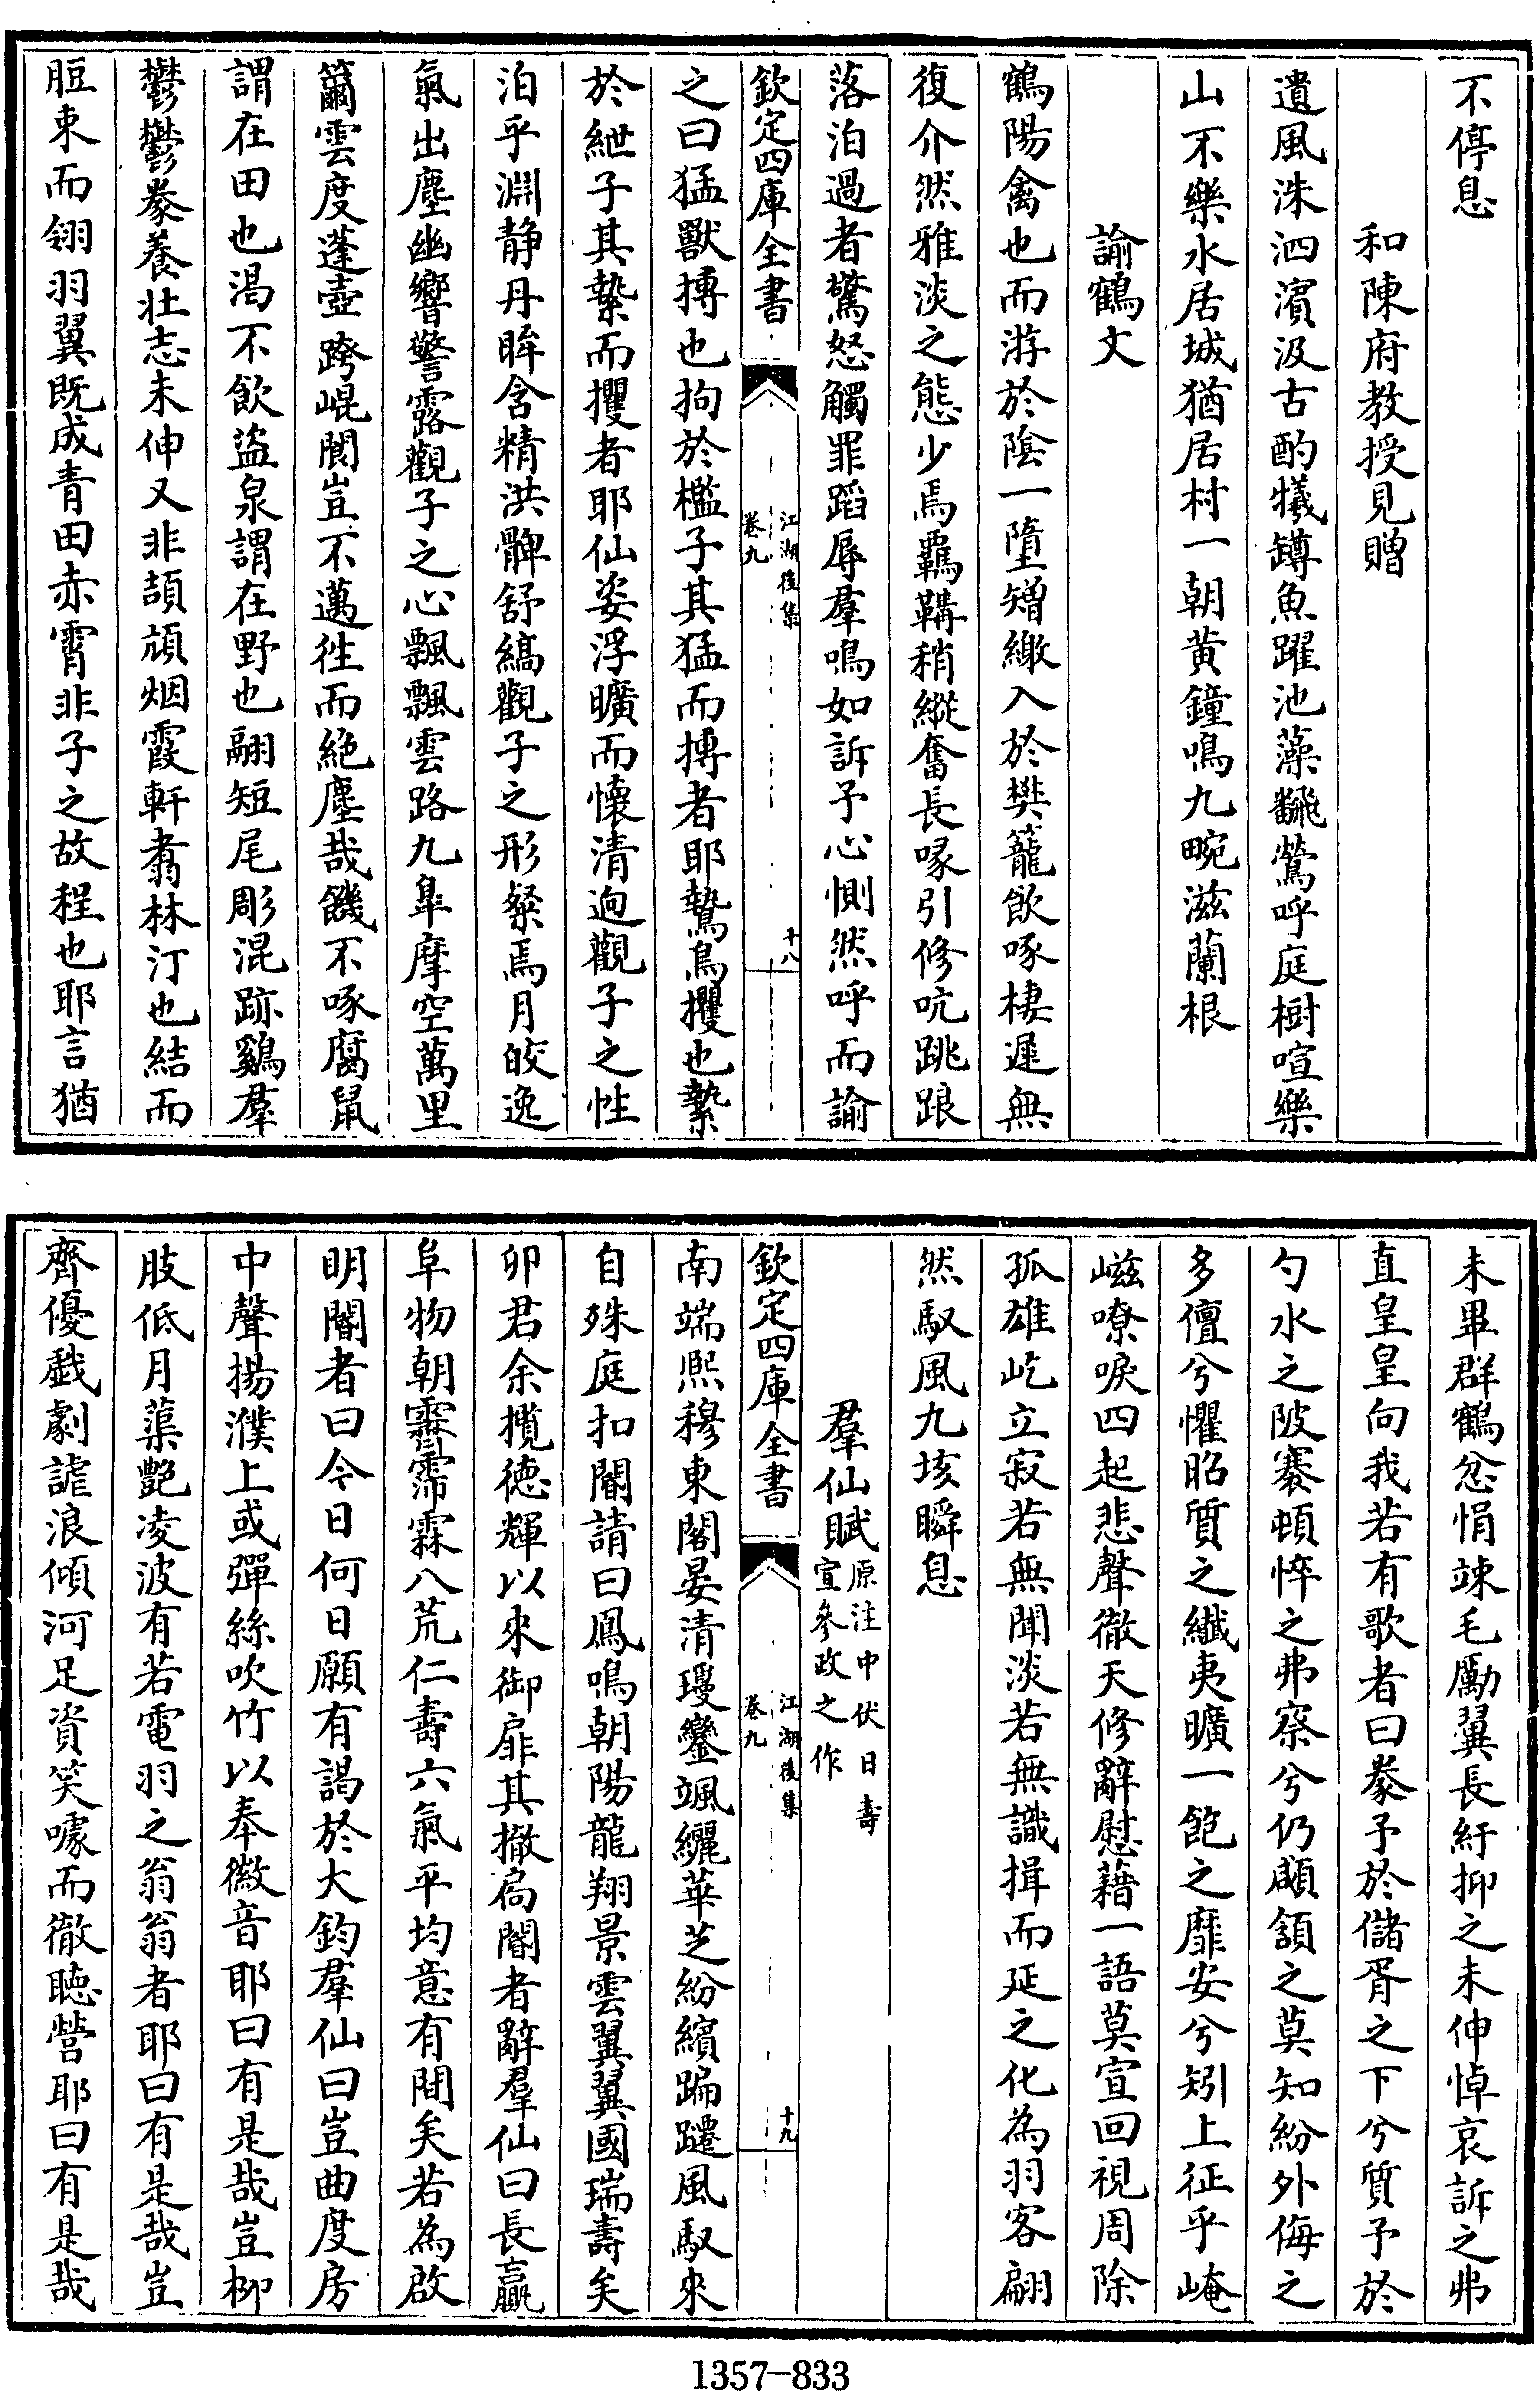 不停息
和陳府教授見贈
遺風洙泗濱汲古酌犧罇魚躍池藻飜鶯呼庭樹喧樂
山不樂水居城猶居村一朝黄鐘鳴九畹滋蘭根
諭鶴文
鶴陽禽也而游於隂一墮矰繳入於樊籠飲啄棲遲無
復介然雅淡之態少焉羈鞲稍縱奮長喙引修吭跳踉
落泊過者驚怒觸罪蹈辱羣鳴如訴予心惻然呼而諭
欽定四庫全書
江湖後集
卷九
十八
之曰猛獸搏也拘於檻子其猛而搏者耶鷙鳥攫也縶
於紲子其縶而攫者耶仙姿浮曠而懷清逈觀子之性
泊乎淵静丹眸含精洪髀舒縞觀子之形粲焉月皎逸
氣出塵幽響警露觀子之心飄飄雲路九臯摩空萬里
籋雲度蓬壺跨崐閬豈不邁徃而絶塵哉饑不啄腐鼠
謂在田也渴不飲盜泉謂在野也翮短尾彫混跡鷄羣
鬱鬱豢養壯志未伸又非頡頏烟霞軒翥林汀也結而
脰束而翎羽翼既成青田赤霄非子之故程也耶言猶
未畢群鶴忿悁竦毛勵翼長紆抑之未伸悼哀訴之弗
直皇皇向我若有歌者曰豢予於儲胥之下兮質予於
勺水之陂蹇頓悴之弗察兮仍顑頷之莫知紛外侮之
多儃兮懼昭質之纎夷曠一飽之靡安兮矧上征乎崦
嵫嘹唳四起悲聲徹天修辭慰藉一語莫宣回視周除
孤雄屹立寂若無聞淡若無識揖而延之化為羽客翩
然馭風九垓瞬息
羣仙賦原注中伏日壽宣參政之作
欽定四庫全書
江湖後集
卷九
十九
南端熙穆東閣晏清璦鑾颯纚華芝紛繽蹁躚風馭來
自殊庭扣閽請曰鳳鳴朝陽龍翔景雲翼翼國瑞壽矣
卯君余攬德輝以來御扉其撤扃閽者辭羣仙曰長贏
阜物朝霽霈霖八荒仁壽六氣平均意有間矣若為啟
明閽者曰今日何日願有謁於大鈞羣仙曰豈曲度房
中聲揚濮上或彈絲吹竹以奉徽音耶曰有是哉豈柳
肢低月蕖艶凌波有若電羽之翁翁者耶曰有是哉豈
齊優戯劇謔浪傾河足資笑噱而徹聴營耶曰有是哉
1357-833